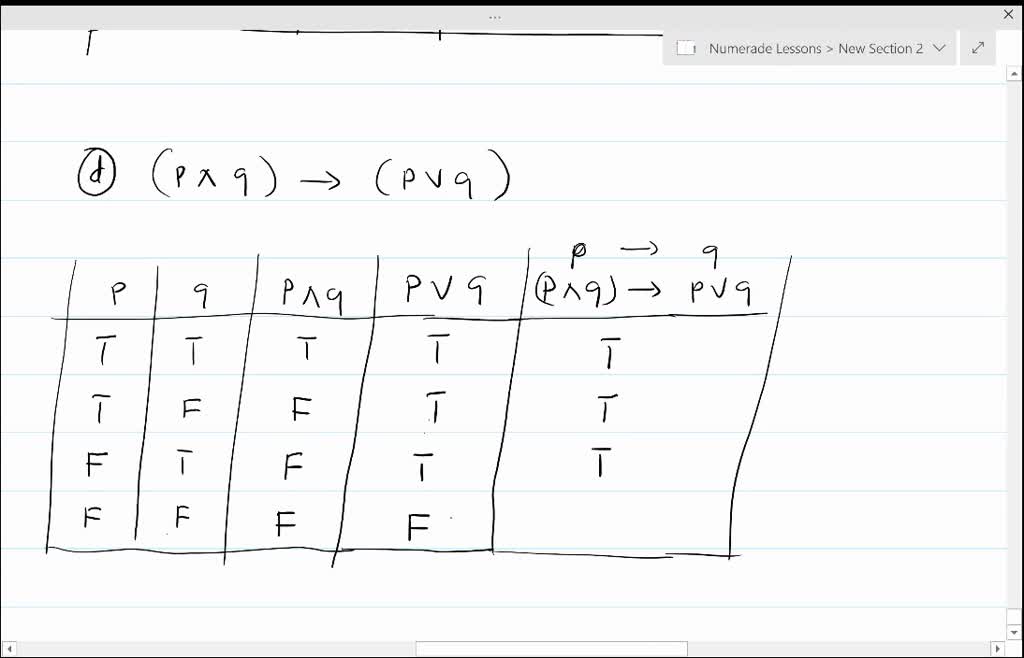 ...
Numerade Lessons > New Section 2
d (p ∧ q) → (p ∨ q)
p → q
p q p ∧ q p ∨ q (p ∧ q) → p ∨ q
T T T T T
T F F T T
F T F T T
F F F F